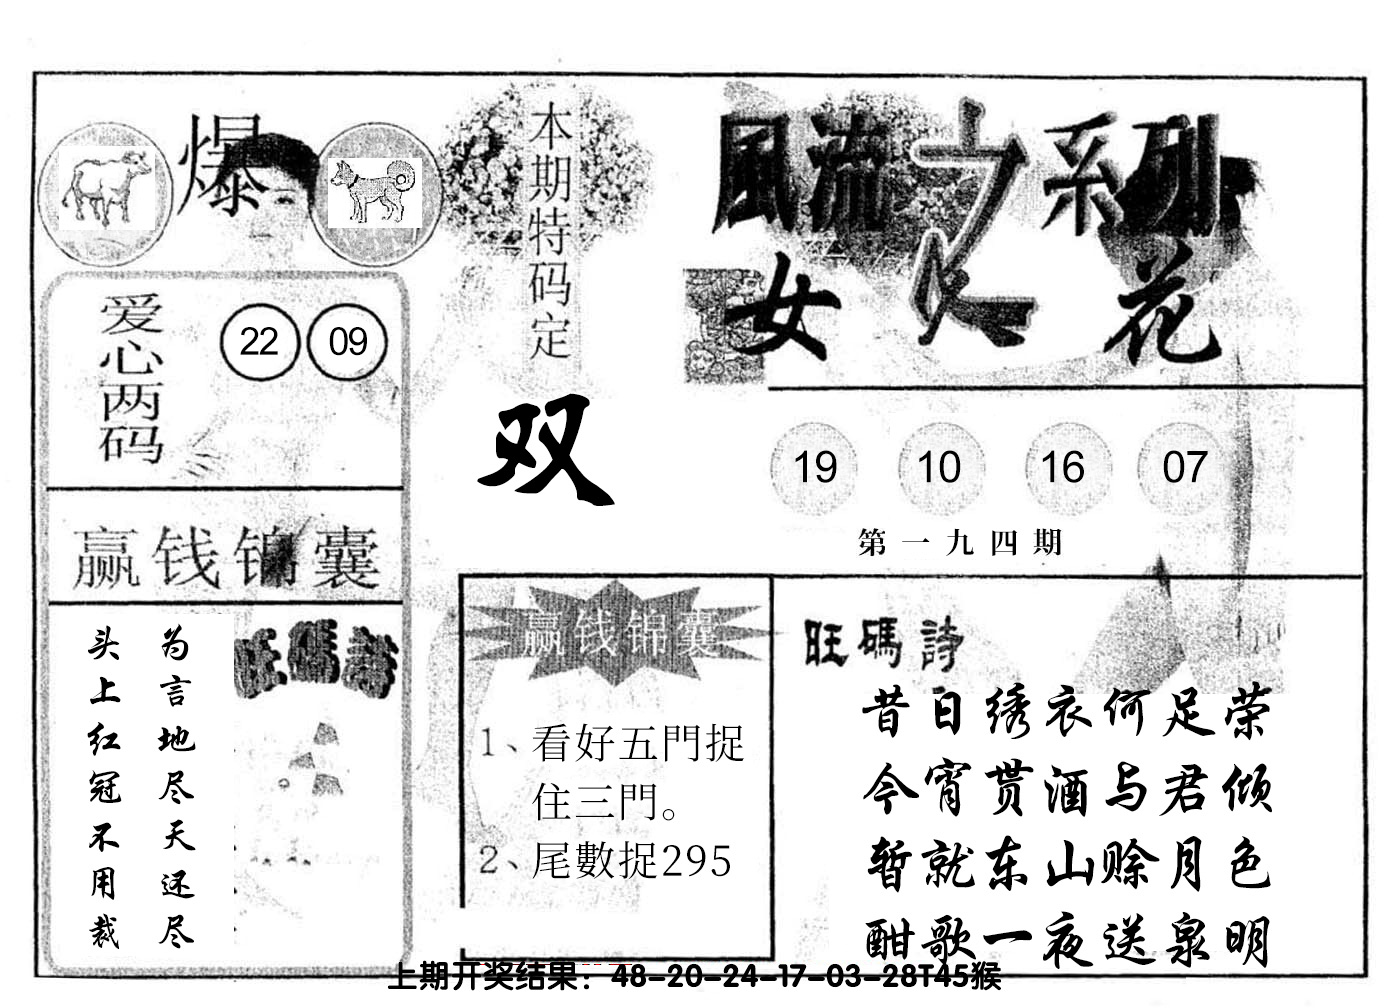 爆
本期特码定
双
爱心两码
22 09
赢钱锦囊
为言地尽天还尽
头上红冠不用裁
旺碼詩
風流之系列
女人花
19 10 16 07
第一九四期
赢钱锦囊
1、看好五門捉
住三門。
2、尾數捉295
旺碼詩
昔日绣衣何足荣
今宵贳酒与君倾
暂就东山赊月色
酣歌一夜送泉明
上期开奖结果：48-20-24-17-03-28T45猴